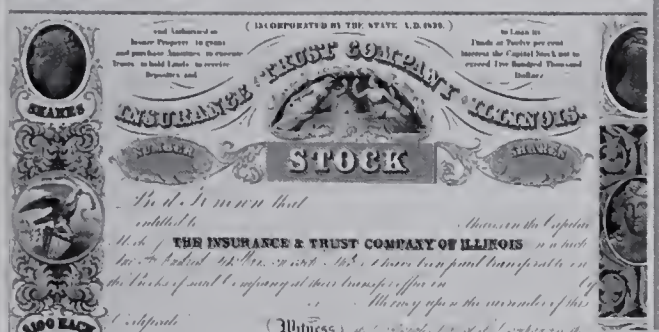 ( INCORPORATED BY THE STATE A.D. 1839. )
and Authorised to
Insure Property to grant
and purchase Annuities to execute
Trusts to hold Lands to receive
Deposites and
to Loan its
Funds at Twelve per cent
Interest the Capital Stock not to
exceed Five Hundred Thousand
Dollars
INSURANCE & TRUST COMPANY ILLINOIS.
SHARES
NUMBER
STOCK
SHARES
Be it Known that
entitled to Shares in the Capital
Stock of THE INSURANCE & TRUST COMPANY OF ILLINOIS on which
have been paid transferable on
the Books of said Company at their transfer office in by
Attorney upon the surrender of this
Certificate
$100 EACH
(Witness)